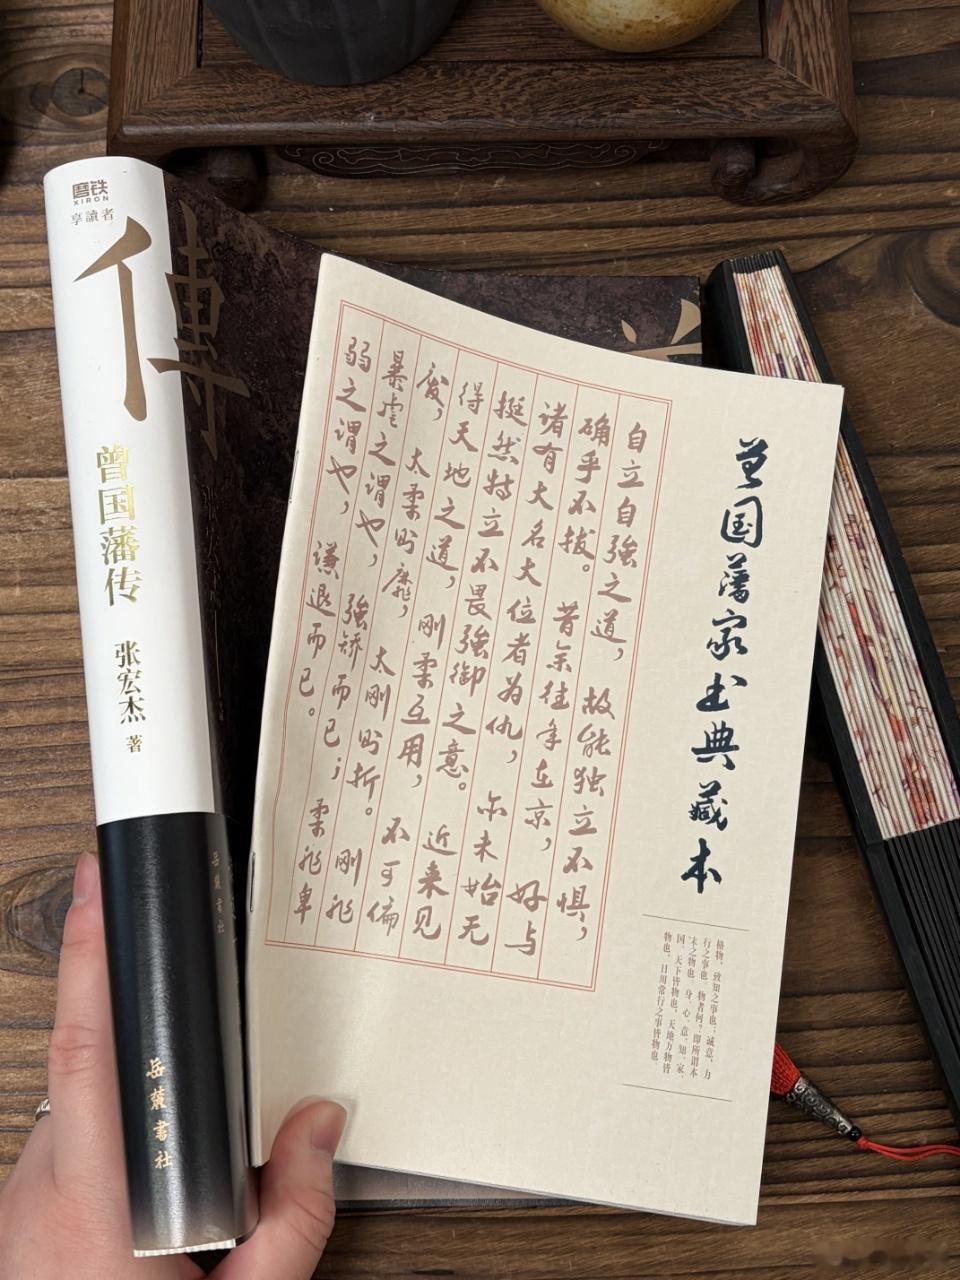 磨铁
XIRON
享讀者
傳
曾国藩传
张宏杰 著
岳麓書社
岳麓書社
曾国藩家书典藏本
自立自強之道，故能独立不惧，
确乎不拔。昔余往年在京，好与
诸有大名大位者为仇，亦未始无
挺然特立不畏強御之意。近来见
得天地之道，刚柔互用，不可偏
废，太柔则靡，太刚则折。刚非
暴虐之谓也，強矫而已；柔非卑
弱之谓也，谦退而已。
格物，致知之事也；诚意，力
行之事也。物者何？即所谓本
末之物也。身、心、意、知、家、
国、天下皆物也，天地万物皆
物也，日用常行之事皆物也。